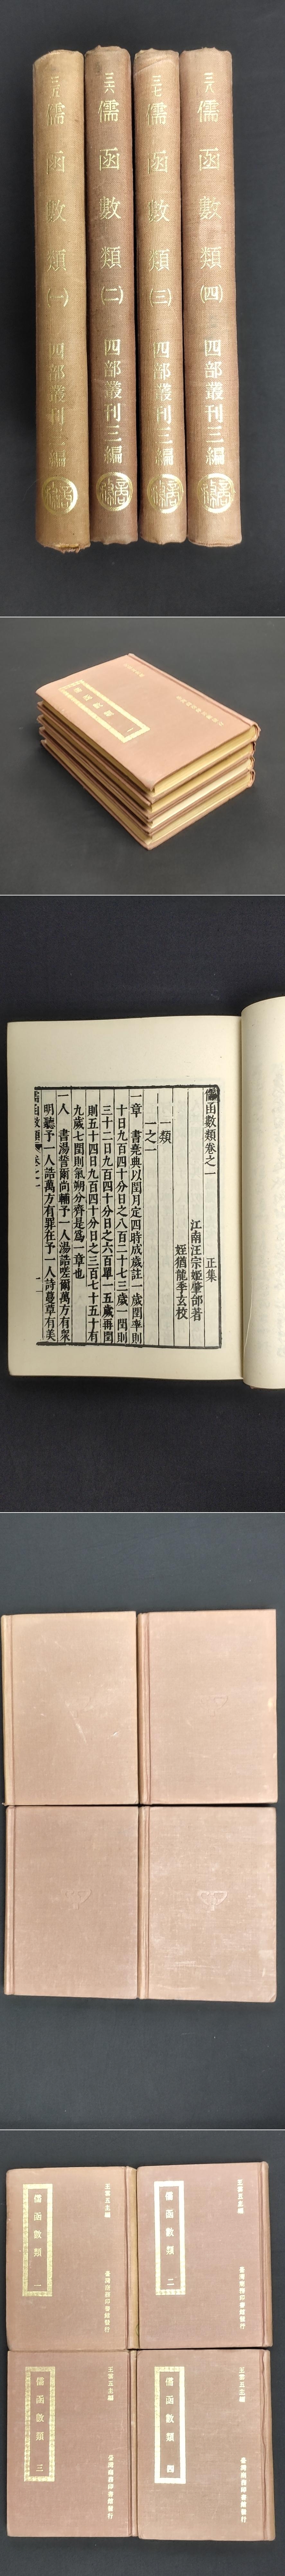 三五 儒函數類 (一) 四部叢刊三編
三六 儒函數類 (二) 四部叢刊三編
三七 儒函數類 (三) 四部叢刊三編
三八 儒函數類 (四) 四部叢刊三編
儒函數類卷之一 正集
江南汪宗姬肇邰著
姪猶龍季玄校
一類
一之一
一章 書堯典以閏月定四時成歲註一歲閏率則
十日九百四十分日之八百二十七三歲一閏則
三十二日九百四十分日之六百單一五歲再閏
則五十四日九百四十分日之三百七十五十有
九歲七閏則氣朔分齊是爲一章也
一人 書湯誓爾尚輔予一人湯誥嗟爾萬方有衆
明聽予一人誥萬方有罪在予一人詩蔓草有美
儒函數類 卷之一
王雲五主編
儒函數類 一
臺灣商務印書館發行
王雲五主編
儒函數類 二
臺灣商務印書館發行
王雲五主編
儒函數類 三
臺灣商務印書館發行
王雲五主編
儒函數類 四
臺灣商務印書館發行